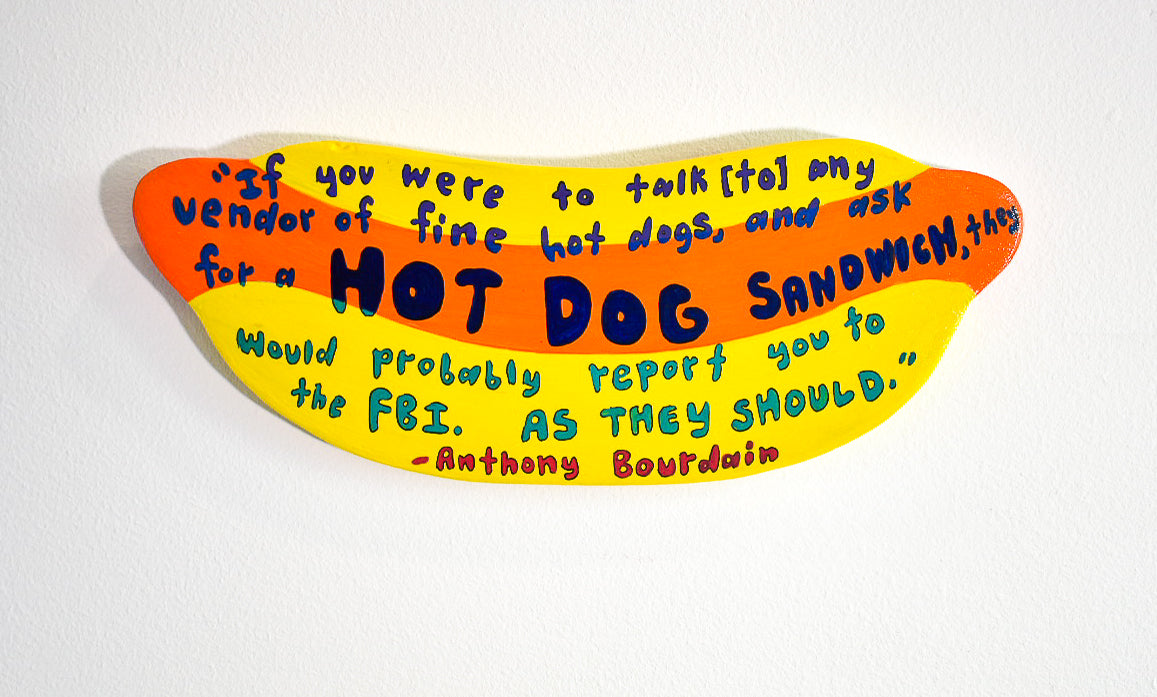 "If you were to talk [to] any
vendor of fine hot dogs, and ask
for a HOT DOG SANDWICH, they
would probably report you to
the FBI. AS THEY SHOULD."
-Anthony Bourdain